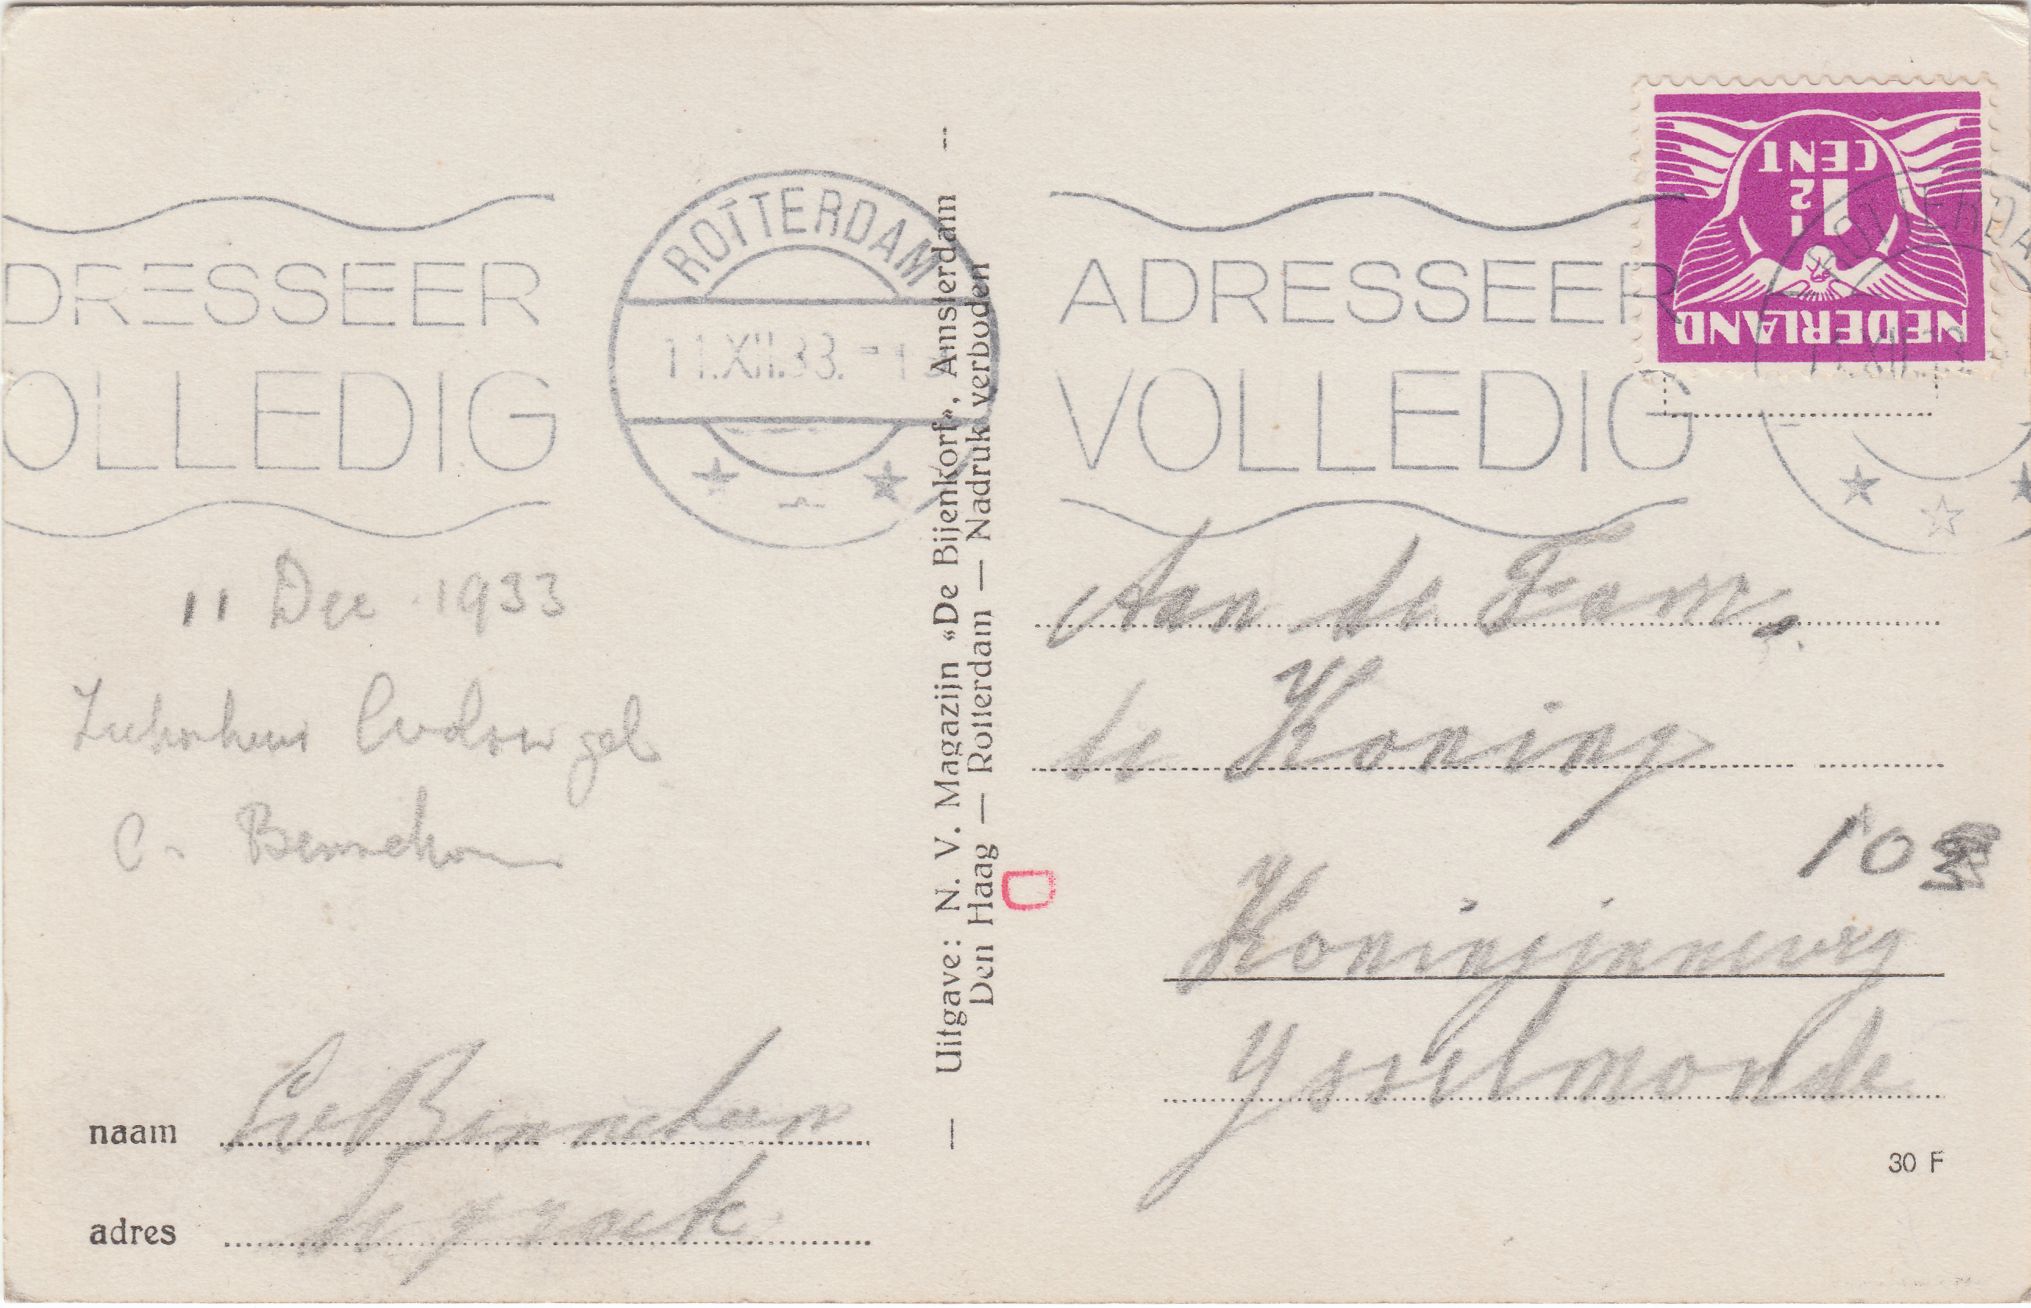 ADRESSEER
VOLLEDIG
ROTTERDAM
11.XII.33.
DRESSEER
OLLEDIG
NEDERLAND
1½
CENT
11 Dec 1933
C. Bennekom
naam
adres
— Uitgave: N. V. Magazijn “De Bijenkorf”, Amsterdam —
Den Haag — Rotterdam — Nadruk verboden
D
Aan de Fam.
de Koning
Koninginneweg
Ysselmonde
30 F